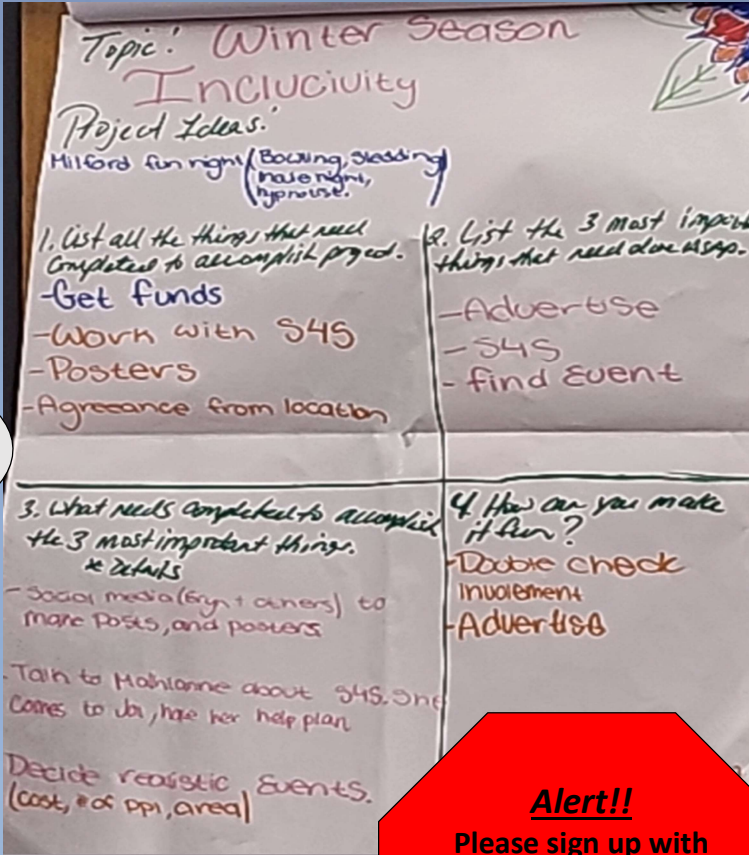 Topic! Winter Season
Inclucivity
Project Ideas!
Milford fun night (Bowling, Sledding
night,
hypnotise.)
1. List all the things that need
Completed to accomplish project.
-Get funds
-Work with S4S
-Posters
-Agreeance from location
2. List the 3 most
things that need done ASAP.
-Advertise
-S4S
-find Event
3. What needs completed to accomplish
the 3 most important things.
* Details
-Social media (Eryn + others) to
make posts, and posters
-Talk to about S4S. She
comes to , have her help plan
Decide realistic Events.
(cost, # of ppl, area)
4. How can you make
it fun?
-Double check
Involement
-Advertise
Alert!!
Please sign up with